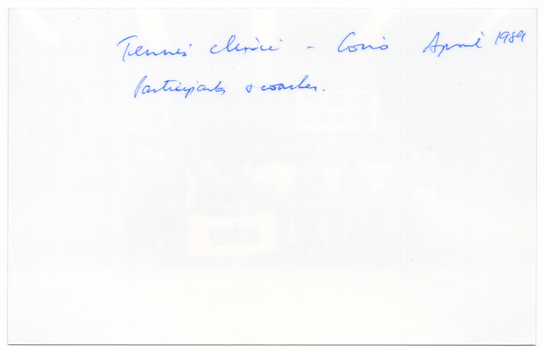 Tennis clinic - Corio April 1989
Participants & coaches.